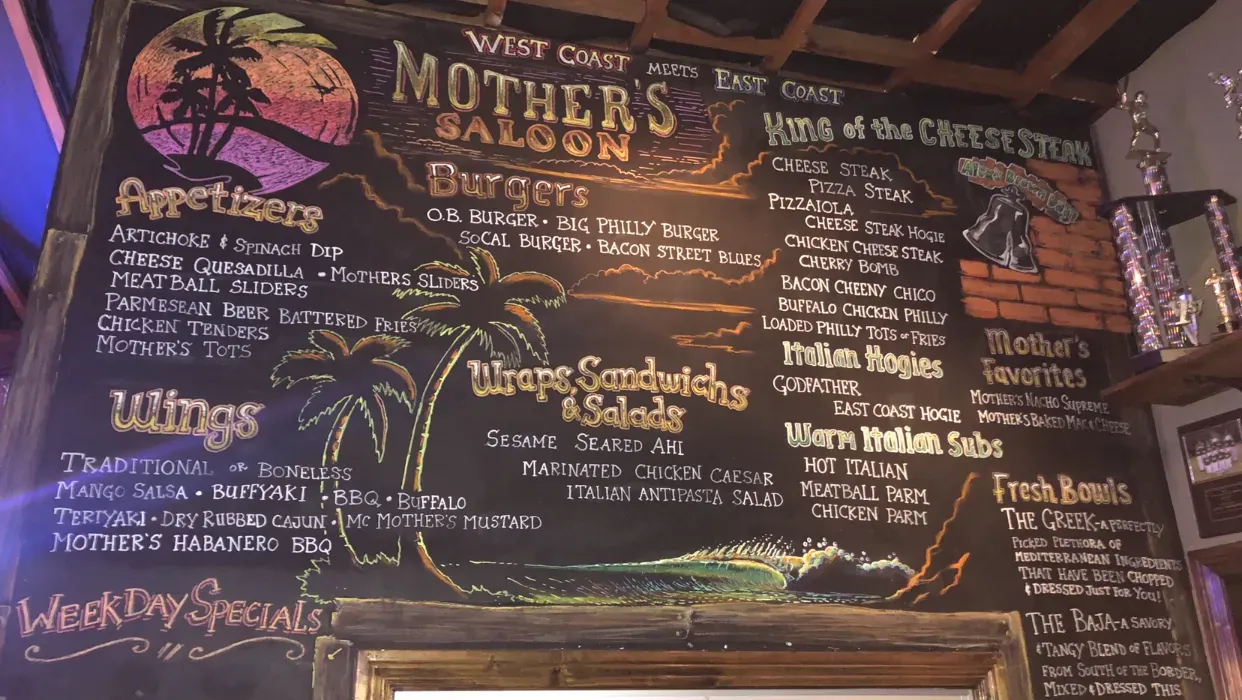 WEST COAST MEETS EAST COAST
MOTHER'S
SALOON
Appetizers
ARTICHOKE & SPINACH DIP
CHEESE QUESADILLA • MOTHERS SLIDERS
MEATBALL SLIDERS
PARMESEAN BEER BATTERED FRIES
CHICKEN TENDERS
MOTHER'S TOTS
Wings
TRADITIONAL OR BONELESS
MANGO SALSA • BUFFYAKI • BBQ • BUFFALO
TERIYAKI • DRY RUBBED CAJUN • MC MOTHER'S MUSTARD
MOTHER'S HABANERO BBQ
WEEKDAY SPECIALS
Burgers
O.B. BURGER • BIG PHILLY BURGER
SOCAL BURGER • BACON STREET BLUES
Wraps, Sandwichs
& Salads
SESAME SEARED AHI
MARINATED CHICKEN CAESAR
ITALIAN ANTIPASTA SALAD
KING of the CHEESESTEAK
CHEESE STEAK
PIZZA STEAK
PIZZAIOLA
CHEESE STEAK HOGIE
CHICKEN CHEESE STEAK
CHERRY BOMB
BACON CHEENY CHICO
BUFFALO CHICKEN PHILLY
LOADED PHILLY TOTS OR FRIES
Italian Hogies
GODFATHER
EAST COAST HOGIE
Warm Italian Subs
HOT ITALIAN
MEATBALL PARM
CHICKEN PARM
Mother's
Favorites
MOTHER'S NACHO SUPREME
MOTHER'S BAKED MAC & CHEESE
Fresh Bowls
THE GREEK-A PERFECTLY
PICKED PLETHORA OF
MEDITERRANEAN INGREDIENTS
THAT HAVE BEEN CHOPPED
& DRESSED JUST FOR YOU!
THE BAJA-A SAVORY
& TANGY BLEND OF FLAVORS
FROM SOUTH OF THE BORDER,
MIXED & DRESSED THIS